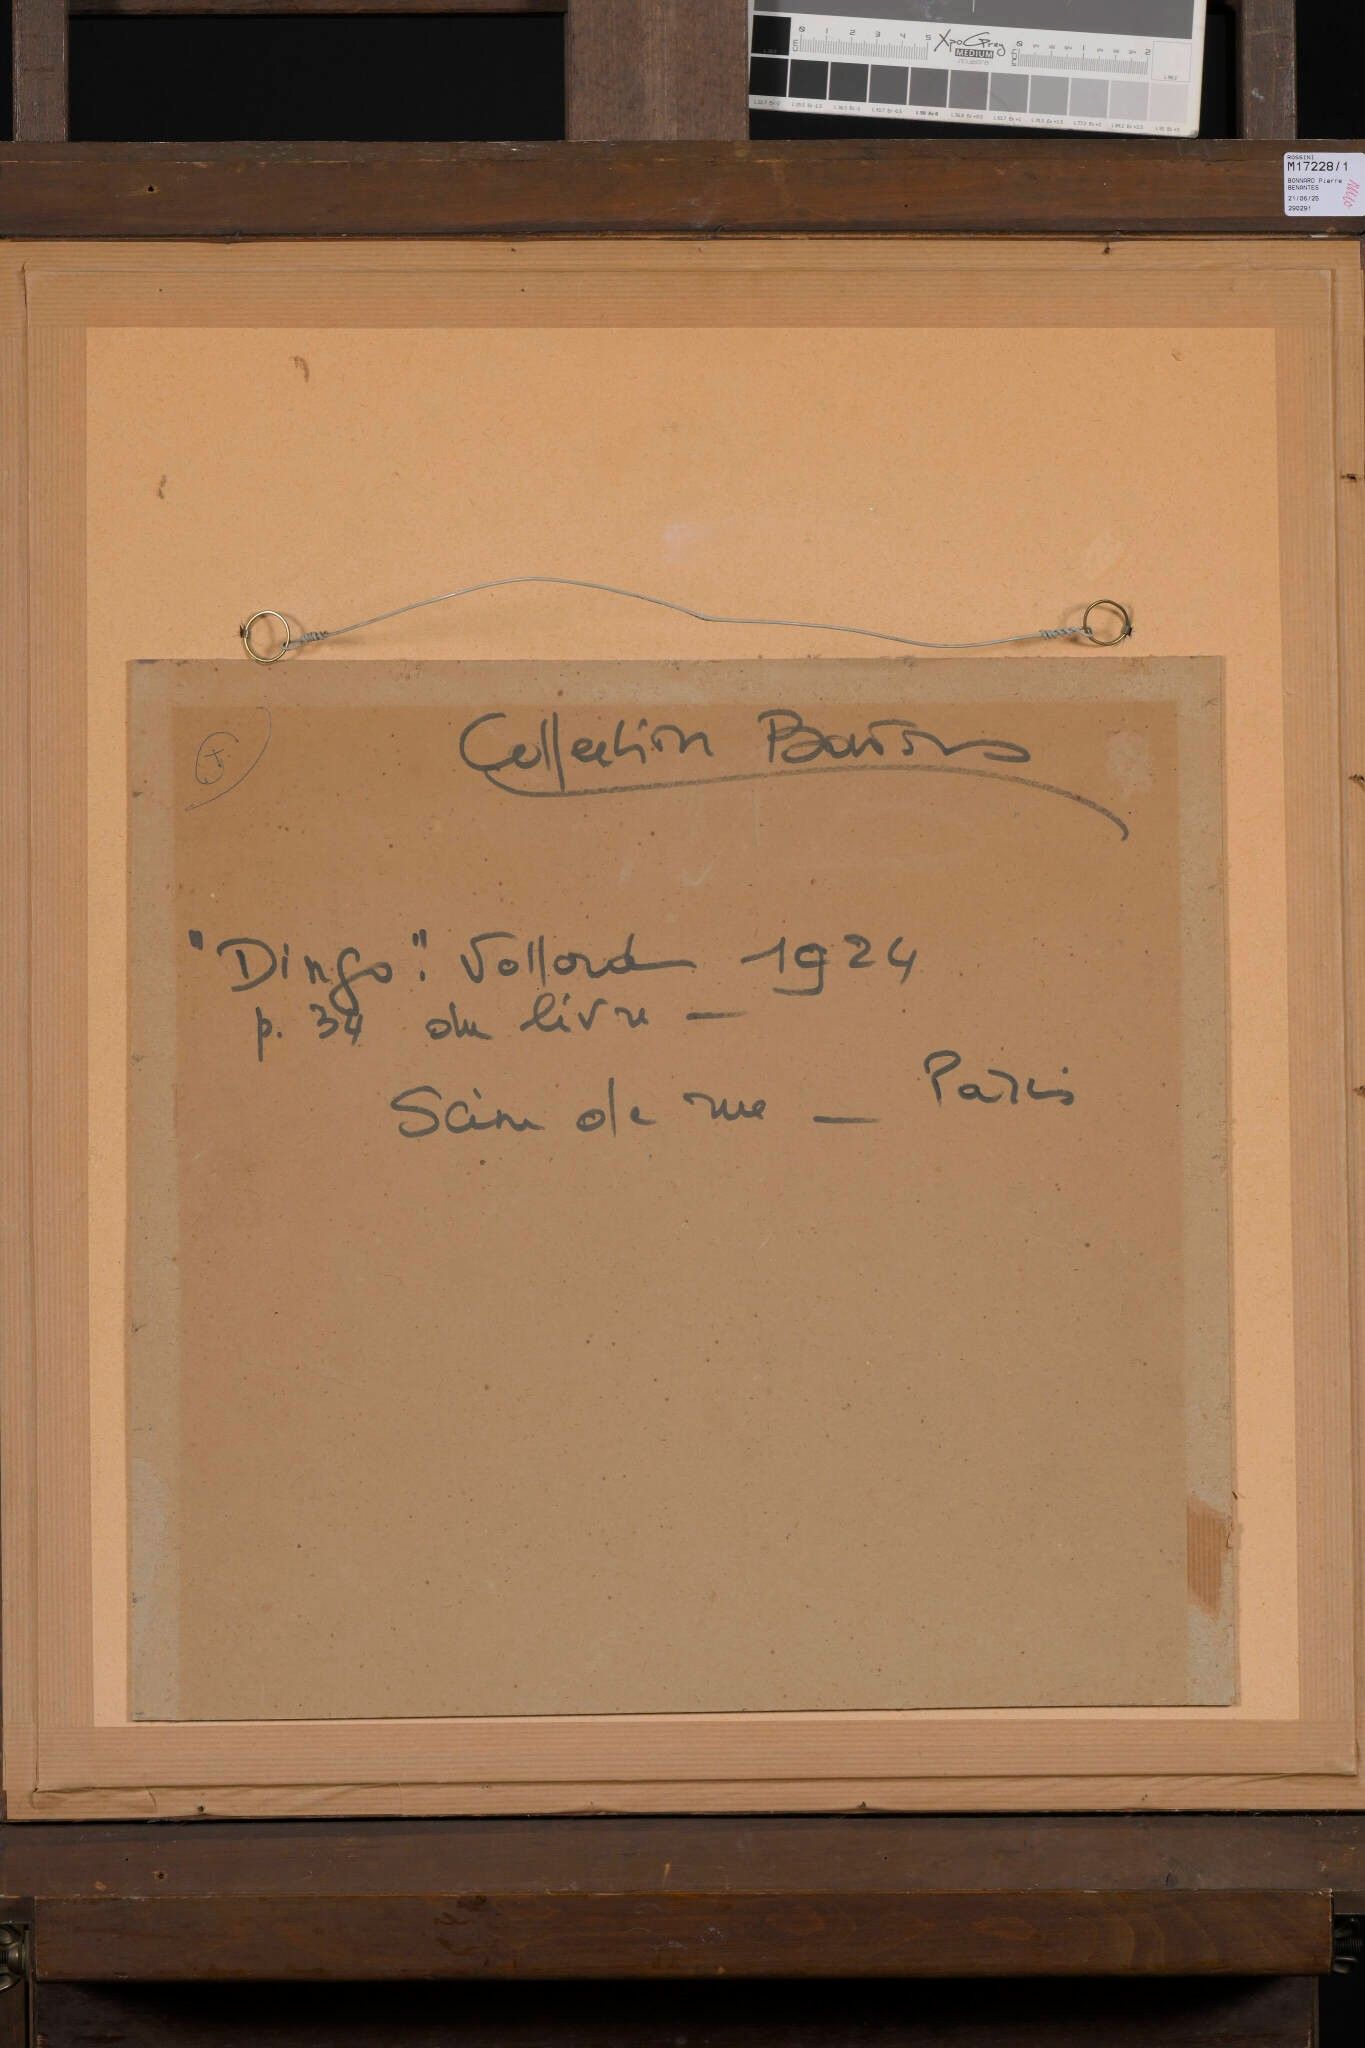 0 1 2 3 4 5 XpoGray 0 1 2
cm MEDIUM inch
ROSSINI
M17228/1
BONNARD Pierre
BENANTES
21/06/25
290291
Collection
"Dingo". Vollard 1924
p. 34 du livre —
Scène de rue — Paris